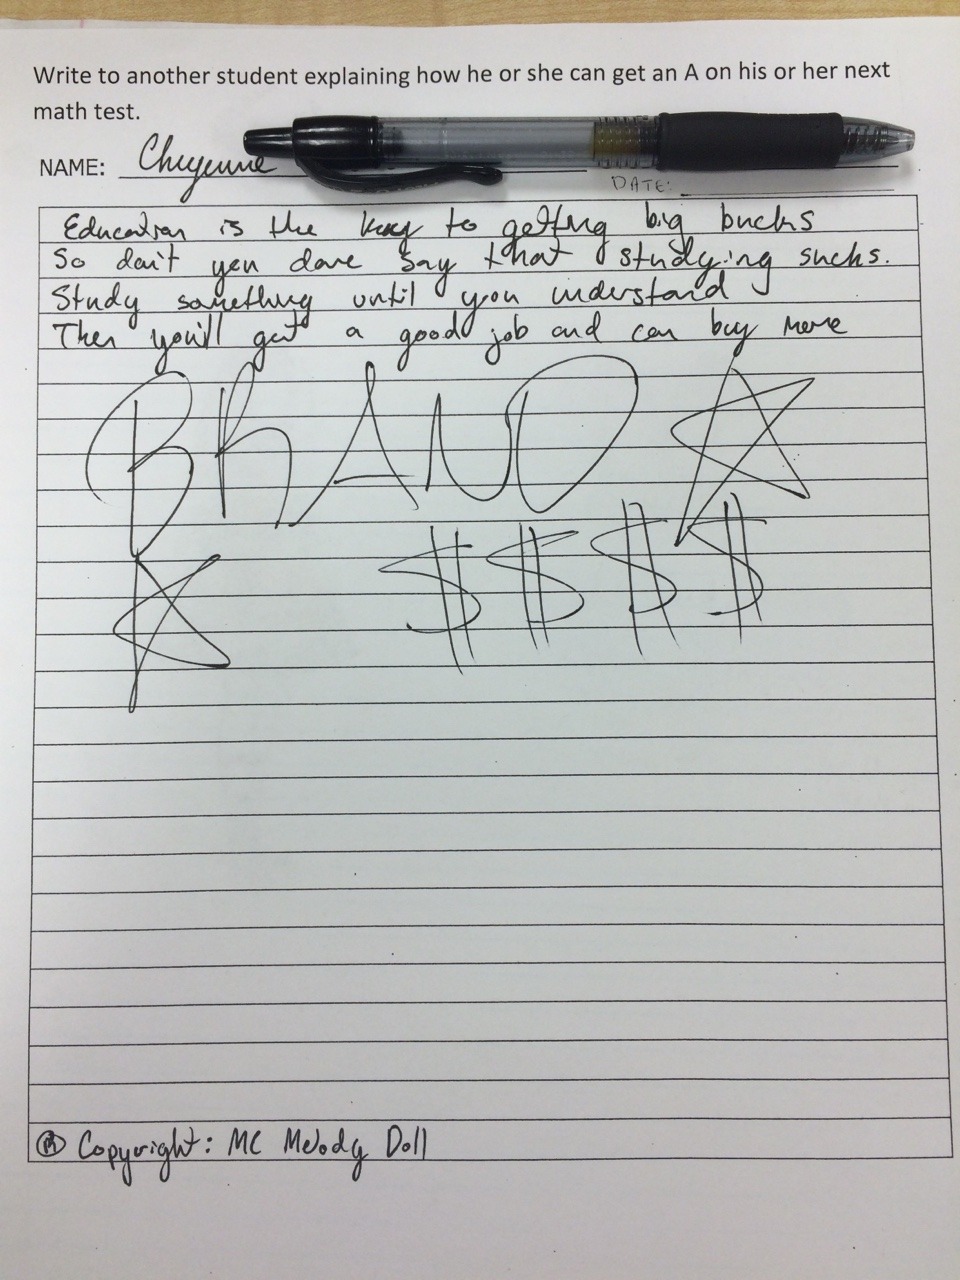 Write to another student explaining how he or she can get an A on his or her next
math test.
NAME: Cheyenne
DATE:
Education is the key to getting big bucks
So don't you dare say that studying sucks.
Study something until you understand
Then you'll get a good job and can buy more
BRAND
$ $ $ $
Ⓡ Copyright: MC Melody Doll